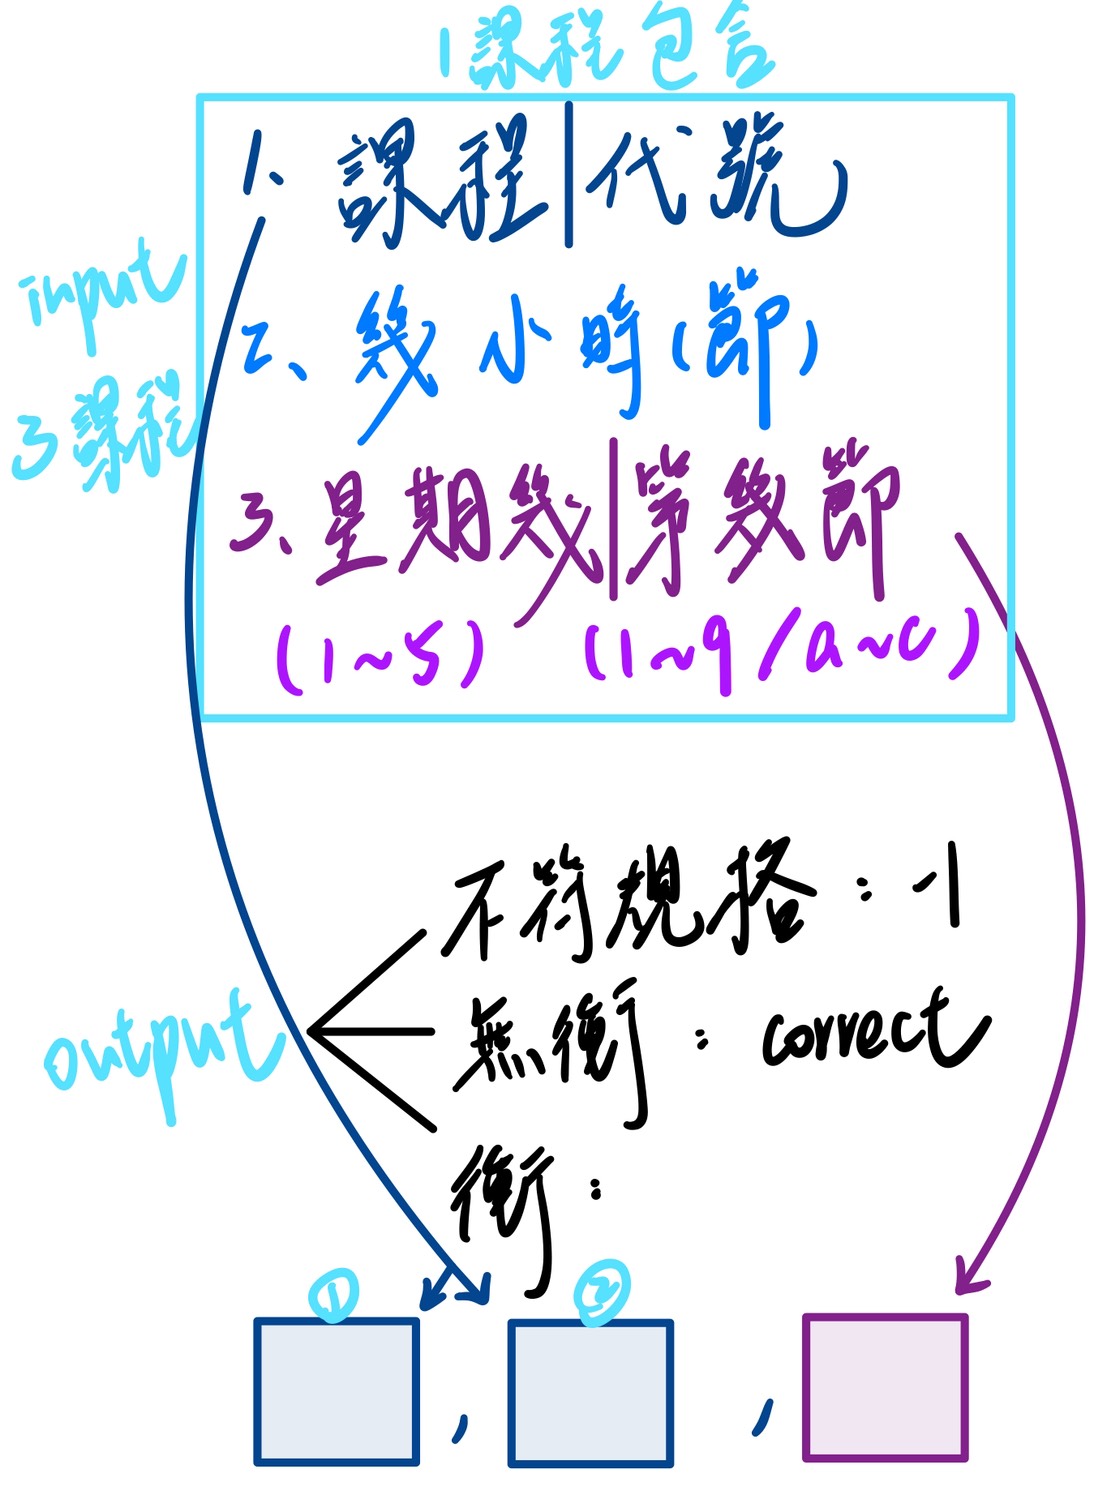 1課程包含
input
3課程
1、課程|代號
2、幾小時(節)
3、星期幾|第幾節
(1~5) (1~9/a~c)
output
不符規格：-1
無衝：correct
衝：
① ②
, ,